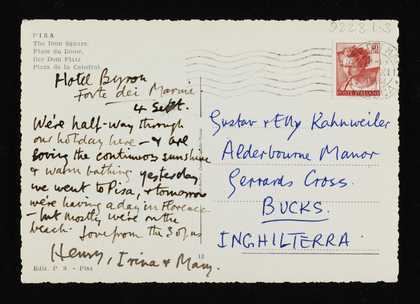 9223.1.3
PISA
The Dom Square.
Place du Dome.
Der Dom Platz
Plaza de la Catedral
Hotel Byron
Forte dei Marmi.
4 Sept.
We're half-way through
our holiday here – & are
loving the continuous sunshine
& warm bathing yesterday
we went to Pisa, & tomorrow
we're having a day in Florence
– but mostly we're on the
beach. Love from the 3 of us
Henry, Irina & Mary.
Ediz. P. S. - Pisa
12
POSTE ITALIANE
Gustav & Elly Kahnweiler
Alderbourne Manor
Gerrards Cross.
BUCKS.
INGHILTERRA.